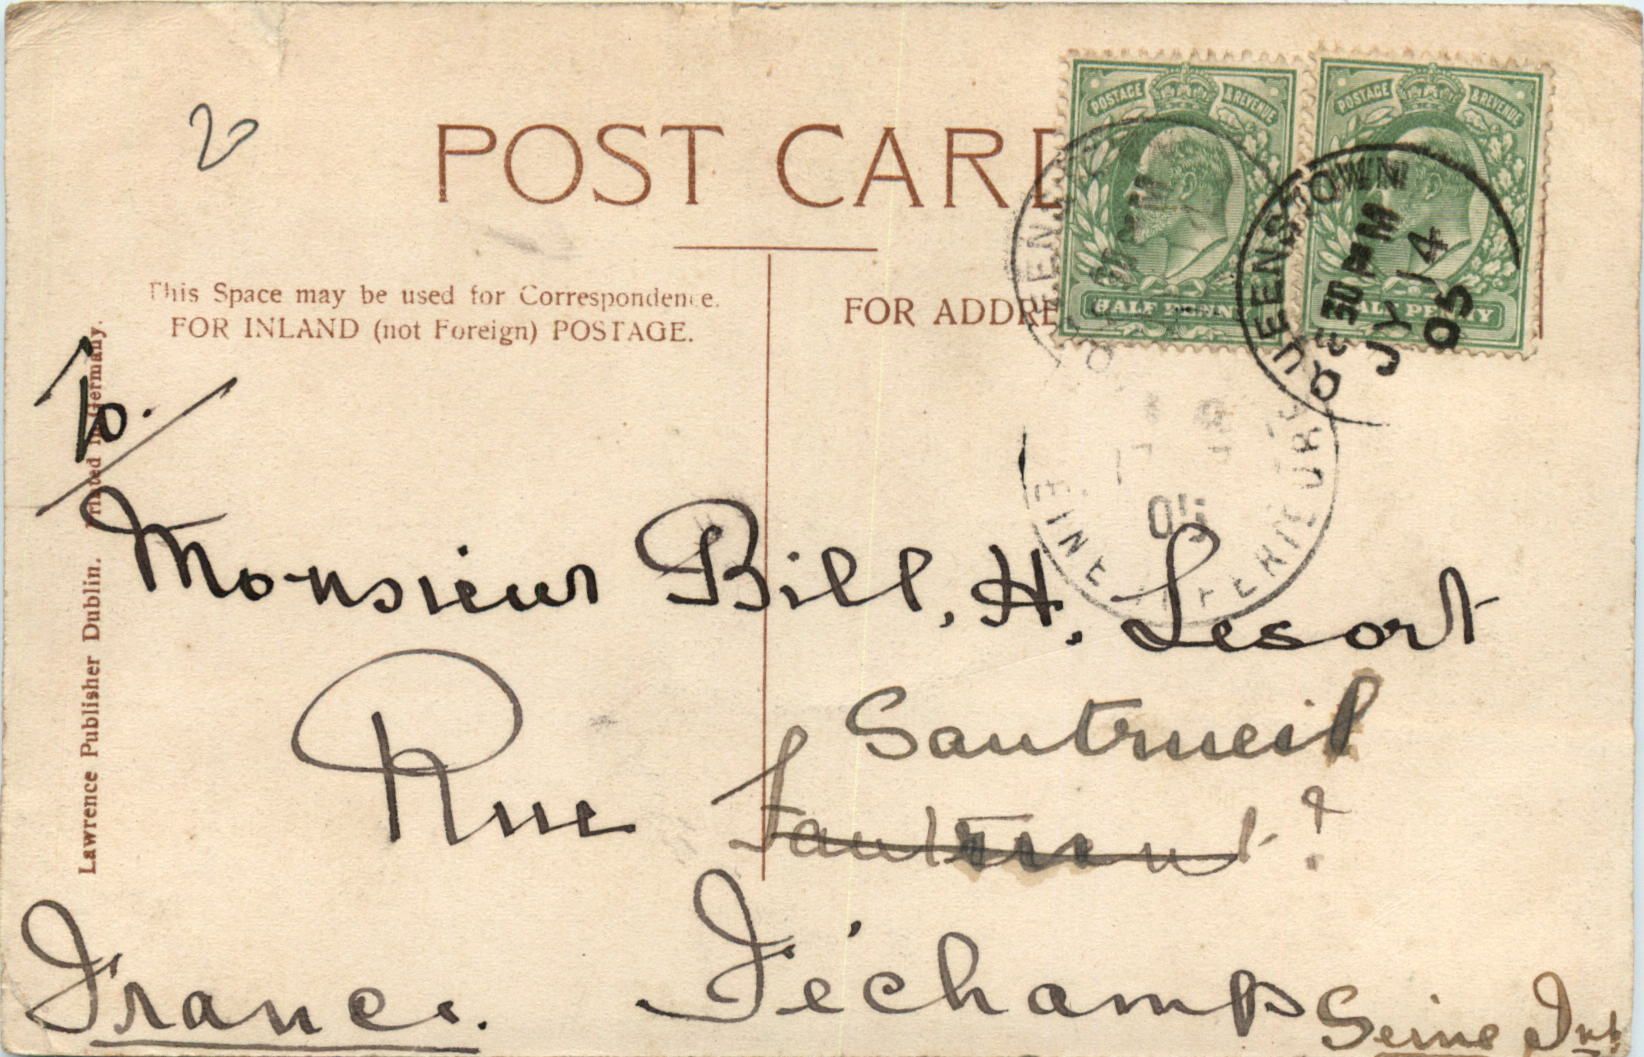 20
POST CARD
POSTAGE & REVENUE
HALF PENNY
POSTAGE & REVENUE
HALF PENNY
QUEENSTOWN
8 30 PM
JY 14
05
This Space may be used for Correspondence.
FOR INLAND (not Foreign) POSTAGE.
FOR ADDRE
05
SEINE INFERIEURE
To.
Monsieur Bill. H. Lesort
Rue Sautreuil
Féchamps Seine Inf
France.
Lawrence Publisher Dublin. Printed in Germany.